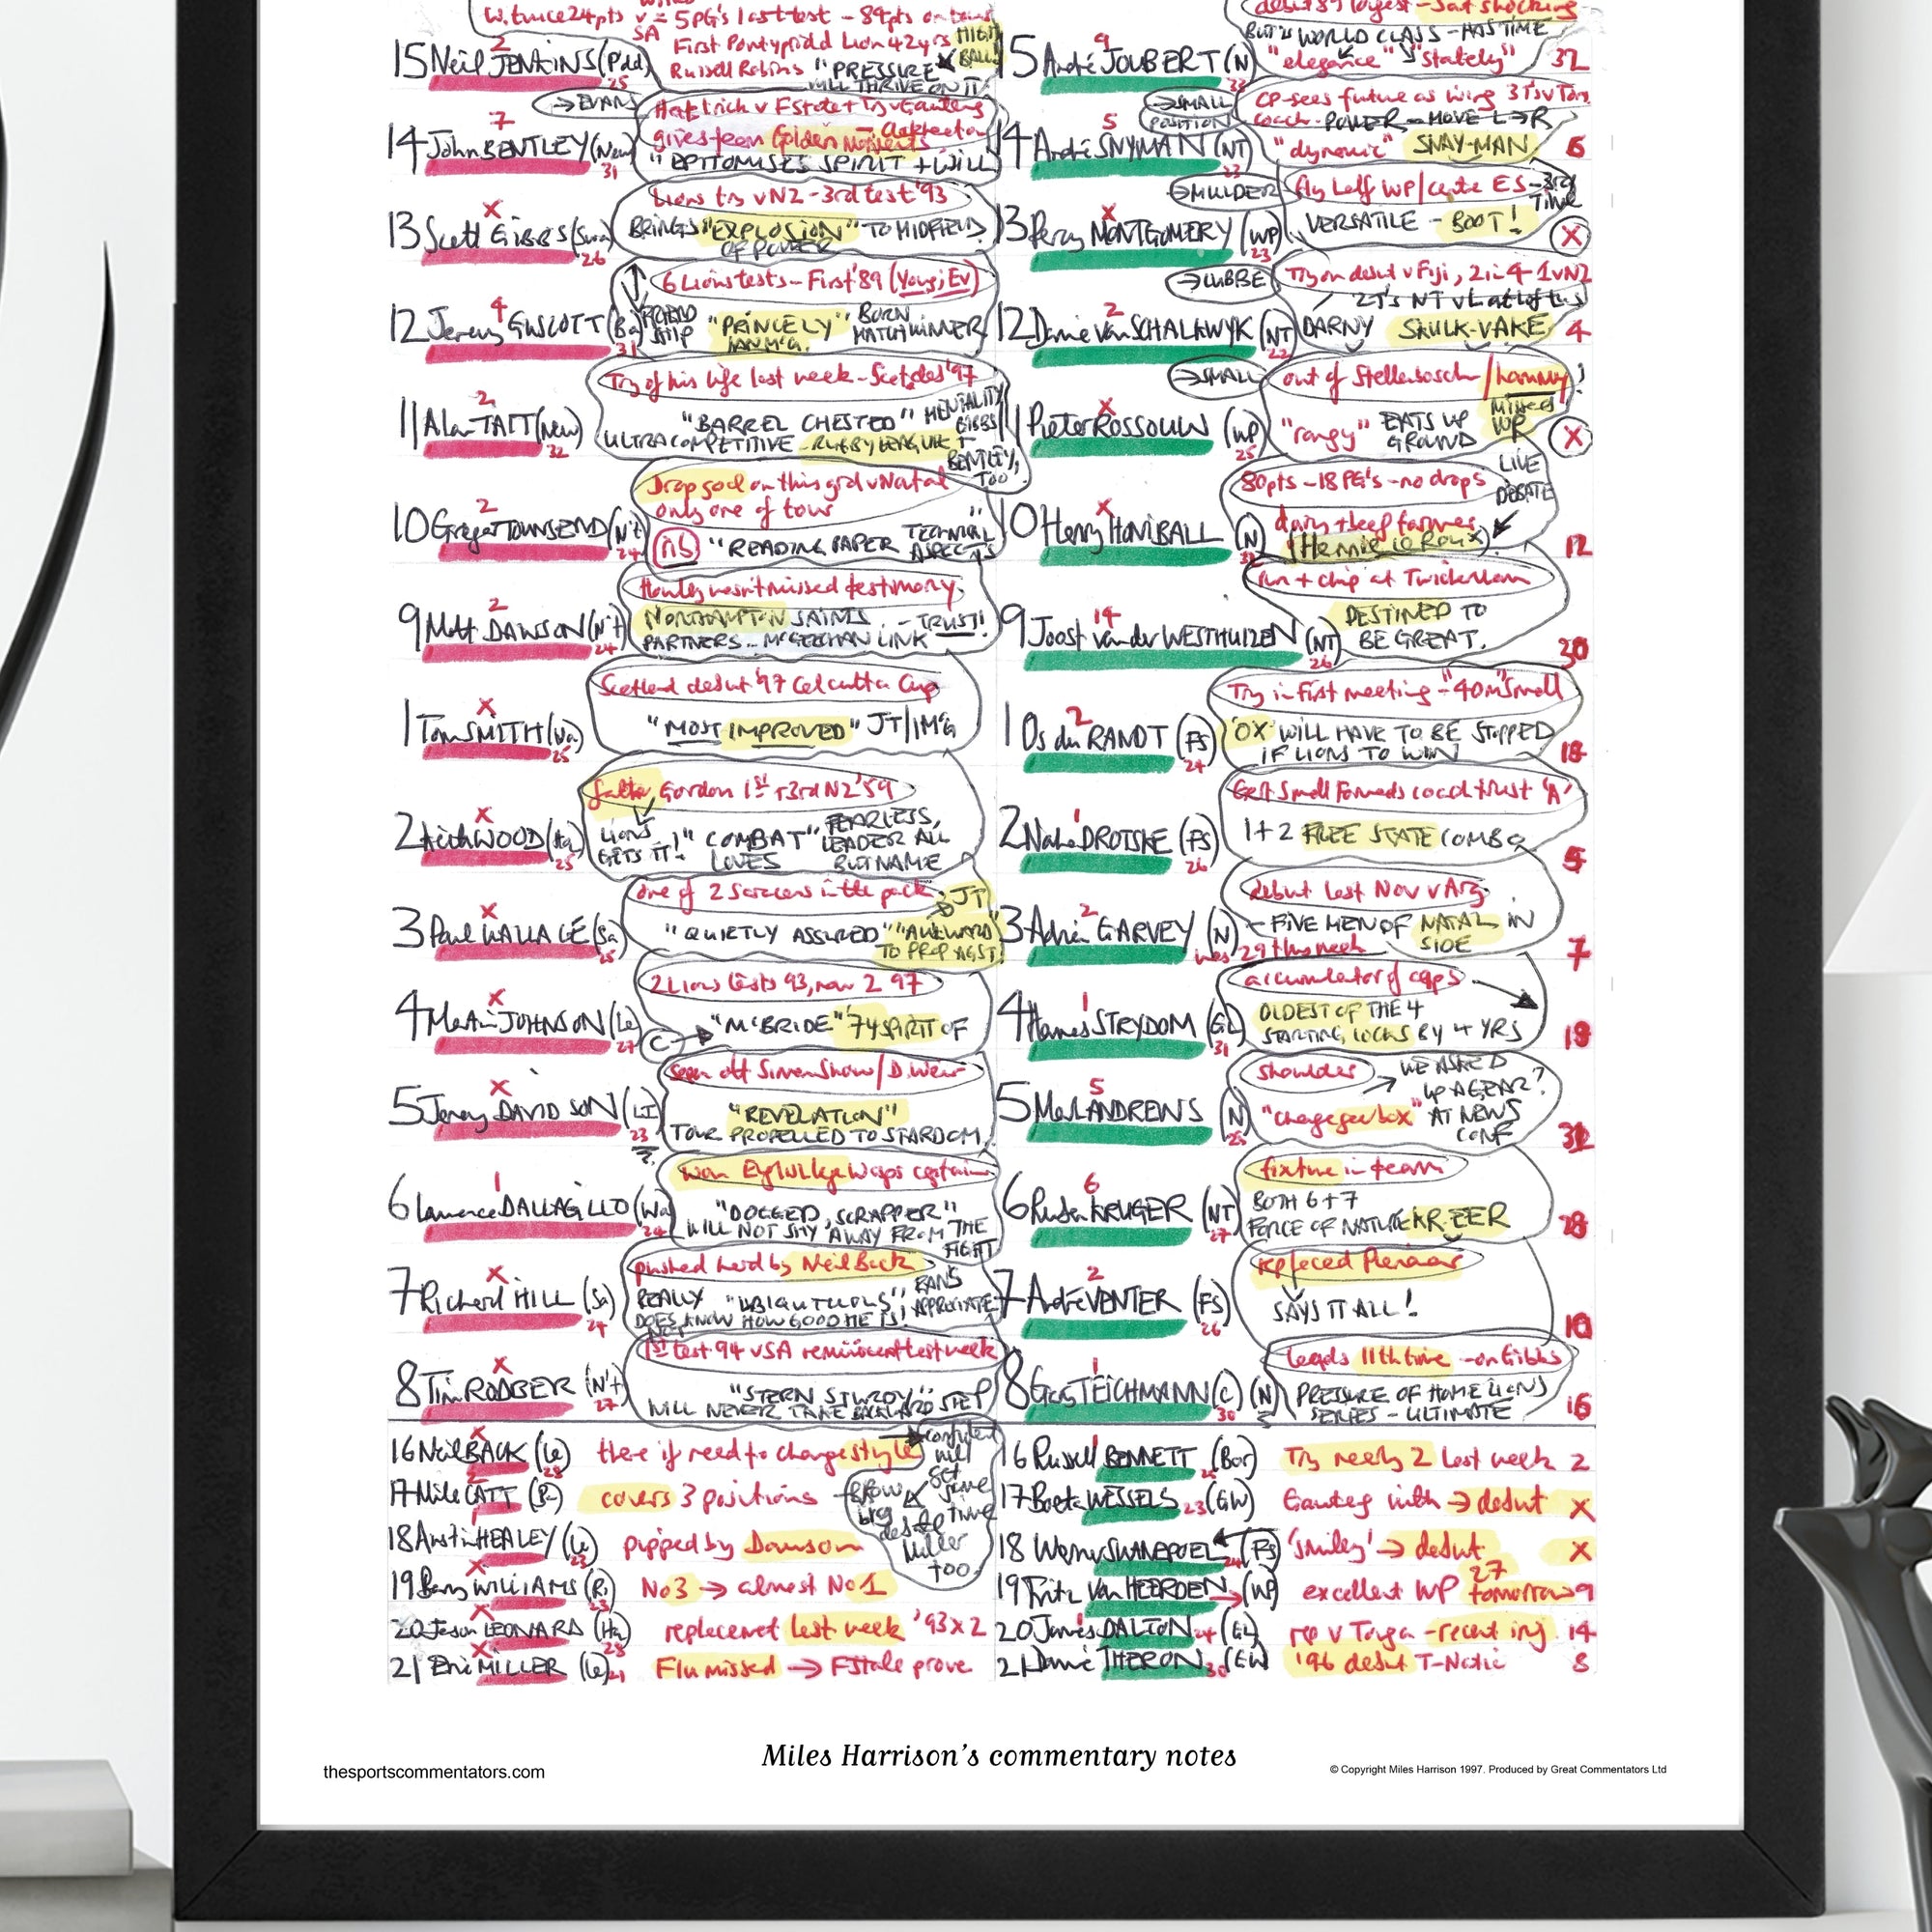 W. twice 24pts v = 5PG's last test - 89pts on tour
SA First Pontypridd Lion 42yrs HIGH BALL
15 Neil JENKINS (P'dd) 2 25
Russell Robins "PRESSURE"
WILL THRIVE ON IT
→ EVANS
14 John BENTLEY (New) 7 31
Hat trick v F State + Try v Gauteng
gives team Golden Moments
"EPITOMISES SPIRIT + WILL
13 Scott GIBBS (Swa) X 26
Lions try v NZ - 3rd test '93
BRINGS "EXPLOSION" TO MIDFIELD
OF POWER
12 Jeremy GUSCOTT (Ba) 4 31
6 Lions tests - First '89 (Young, Ev)
"PRINCELY" BORN MATCHWINNER
IAN McG.
11 Alan TAIT (New) 2 32
Try of his life last week - Scot des '97
"BARREL CHESTED" MENTALITY
ULTRA COMPETITIVE - RUGBY LEAGUE +
GIBBS
BENTLEY, TOO
10 Gregor TOWNSEND (N't) 2 24
Drop goal on this grd v Natal
only one of tour
nb "READING PAPER TECHNICAL ASPECTS
9 Matt DAWSON (N't) 2 24
Howley wasn't missed testimony
NORTHAMPTON SAINTS - TRUST!
PARTNERS - McGEECHAN LINK
1 Tom SMITH (Wa) X 25
Scotland debut '97 Calcutta Cup
"MOST IMPROVED" JT/IMcG
2 Keith WOOD (Ha) X 25
father Gordon 1st + 3rd NZ '59
LIONS GETS IT! "COMBAT" FEARLESS,
LOVES LEADER ALL BUT NAME
3 Paul WALLACE (Sa) X 25
one of 2 Saracens in the pack → JT
"QUIETLY ASSURED" "AWKWARD
TO PROP AGST
4 Martin JOHNSON (Le) X 27
2 Lions tests 93, now 2 97
C → "McBRIDE" '74 SPIRIT OF
5 Jeremy DAVIDSON (LI) X 23
seen off Simon Shaw / D. Weir
"REVELATION"
TOUR PROPELLED TO STARDOM
6 Lawrence DALLAGLIO (Wa) 1 24
won Eng Wasps captain
"DOGGED, SCRAPPER"
WILL NOT SHY AWAY FROM THE FIGHT
7 Richard HILL (Sa) X 24
pushed hard by Neil Back
REALLY "UBIQUITOUS" APPROPRIATE
DOES NOT KNOW HOW GOOD HE IS!
8 Tim RODBER (N't) X 27
1st test 94 v SA reminiscent last week
"STERN STURDY"
WILL NEVER TAKE BACKWARD STEP
16 Neil BACK (Le) X 28 there if need to change style
17 Mike CATT (Ba) covers 3 positions
18 Austin HEALEY (Le) 23 pipped by Dawson
19 Barry WILLIAMS (Ri) X 23 No 3 → almost No 1
20 Jason LEONARD (Ha) X 28 replacement last week '93 x 2
21 Eric MILLER (Le) X 21 Flu missed → F State prove
confident will get some time
Miller too
debut 89 longest - Sat shocking
BUT'S WORLD CLASS - HAS TIME
15 André JOUBERT (N) 9 33
"elegance" "stately" 32
→ SMALL POSITION
14 André SNYMAN (NT) 5 23
CP - sees future as wing 3T's v Tonga
coach - POWER - MOVE L → R
"dynamic" SNAY-MAN 6
→ MULDER
13 Percy MONTGOMERY (WP) X 23
fly half WP / centre ES - 3rd TIME
VERSATILE - BOOT! X
→ LUBBE
12 Danie van SCHALKWYK (NT) 2 22
Try on debut v Fiji, 2 in 4 - 1 v NZ
2T's NT v
DARNY SKULK-VAKE 4
→ SMALL
11 Pieter ROSSOUW (WP) X 25
out of Stellenbosch / hammy!
"rangy" EATS UP GROUND MISSED WP X
10 Henry HONIBALL (N) X
80pts - 18 PG's - no drops LIVE DEBATE
dairy + beef farmer
Hennie le Roux 12
9 Joost van der WESTHUIZEN (NT) 14 26
run + chip at Twickenham
DESTINED TO
BE GREAT. 30
1 Os du RANDT (FS) 2 24
Try in first meeting - "40m" Small
'OX' WILL HAVE TO BE STOPPED
IF LIONS TO WIN 18
2 Naka DROTSKE (FS) 1 26
Get Small Forwards coach trust 'A'
1 + 2 FREE STATE COMBO 5
3 Adrian GARVEY (N) 2
debut last Nov v Arg
- FIVE MEN OF NATAL IN SIDE
was 29 this week 7
4 Hannes STRYDOM (GL) 1 31
accumulator of caps
OLDEST OF THE 4
STARTING LOCKS BY 4 YRS 19
5 Mark ANDREWS (N) 5 25
shoulder → WE ASKED
UP A GEAR?
"change gearbox" AT NEWS CONF 32
6 Ruben KRUGER (NT) 6 27
fixture in team
BOTH 6 + 7
FORCE OF NATURE KR-EER 28
7 André VENTER (FS) 2 26
replaced Pienaar
SAYS IT ALL! 10
8 Gary TEICHMANN (C) (N) 1 30
leads 11th time - on Gibbs
PRESSURE OF HOME LIONS
SERIES - ULTIMATE 16
16 Russell BENNETT (Bor) 1 25 Try nearly 2 last week 2
17 Boeta WESSELS 23 (GW) Gauteng with → debut X
18 Werner SWANEPOEL 24 (FS) 'smiley' → debut X
19 Fritz VAN HEERDEN → (WP) excellent WP 27 tomorrow 9
20 James DALTON 24 (GL) 1 rep v Tonga - recent inj. 14
21 Dawie THERON 30 (GW) '96 debut T-Nations 8
Miles Harrison's commentary notes
thesportscommentators.com
© Copyright Miles Harrison 1997. Produced by Great Commentators Ltd